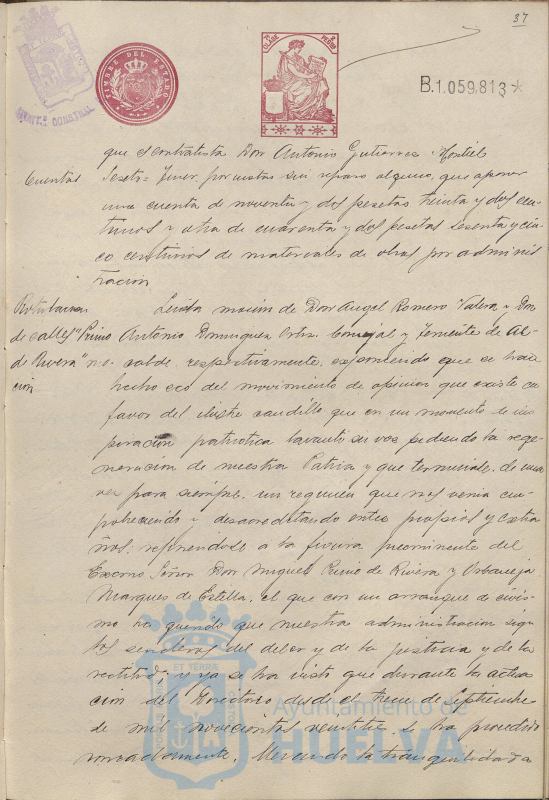 37
TIMBRE DEL ESTADO
CLASE
B.1.059.813*
que el contratista Don Antonio Gutierrez Montiel
Cuentas
sin reparo alguno, que ponen
una cuenta de noventa y dos pesetas treinta y dos cen-
timos y otra de cuarenta y dos pesetas sesenta y cin-
co centimos de materiales de obras por adminis
tracion
Leida mocion de Don Angel Romero Valera y Don
de calles "Primo
Antonio Dominguez Ortiz. Concejal y Teniente de Al-
de Rivera" mo-
calde respectivamente, exponiendo que se han
cion
hecho eco del movimiento de opinion que existe en
favor del ilustre caudillo que en un momento de ins
piracion patriotica levantó su voz pidiendo la rege-
neracion de nuestra Patria y que terminase, de una
vez para siempre, un regimen que nos venia em-
pobreciendo y desacreditando entre propios y extra
ños: refiriendose a la figura preeminente del
Excmo Señor Don Miguel Primo de Rivera y Orbaneja
Marques de Estella, el que con un arranque de civis-
mo ha querido que nuestra administracion siga
los senderos del deber y de la justicia y de la
rectitud, y ya se ha visto que durante la actua
cion del Directorio desde el trece de Septiembre
de mil novecientos veintitres se ha procedido
honradamente. la tranquilidad a
ET TERRA
Ayuntamiento de
HUELVA